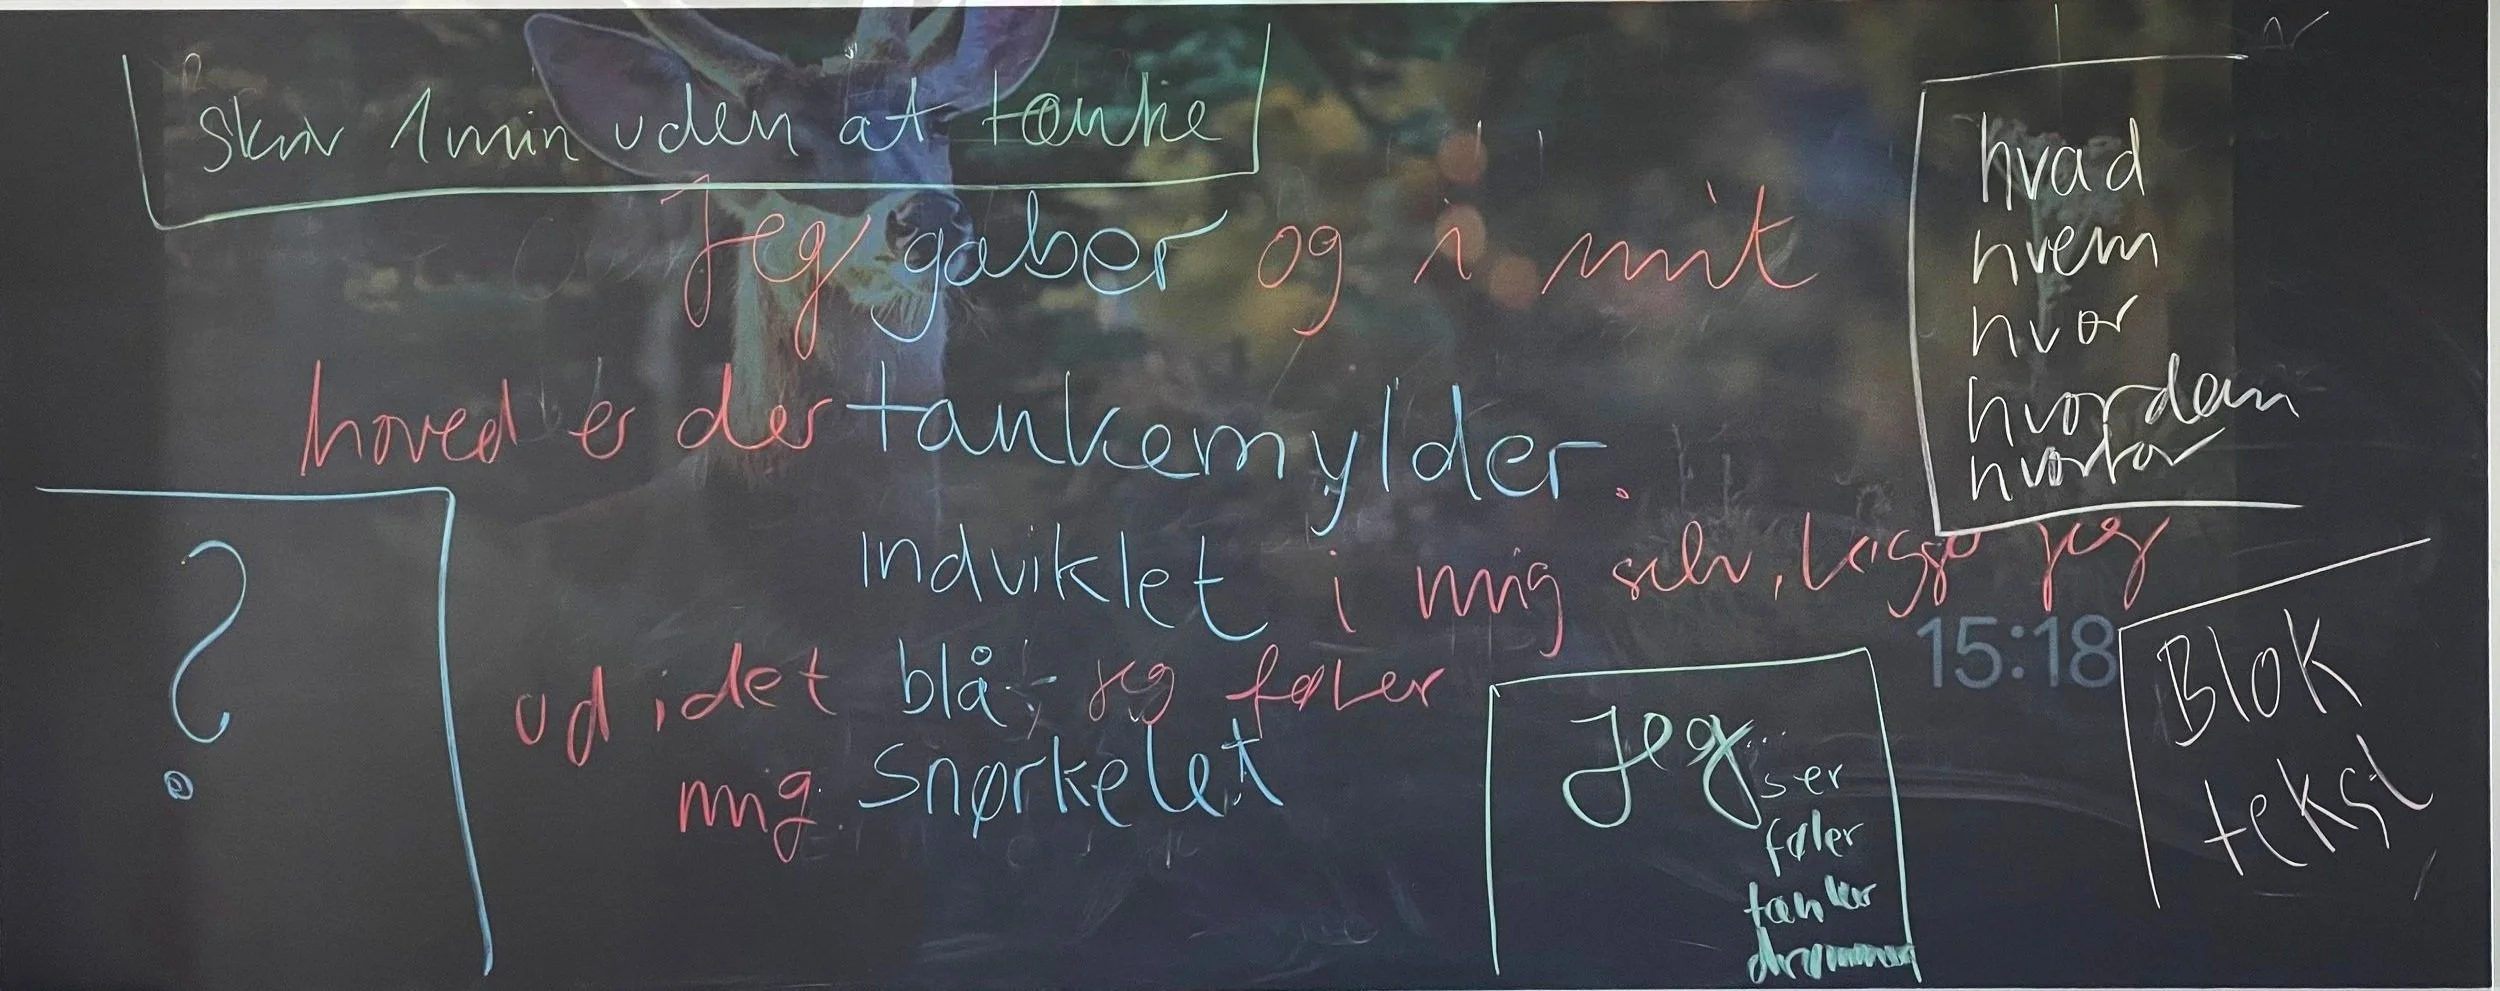 Skriv 1 min uden at tænke
Jeg gaber og i mit
hoved er der tankemylder.
Indviklet i mig selv, kigger jeg
ud i det blå - jeg føler
mig snørkelet
hvad
hvem
hvor
hvordan
hvorfor
?
15:18
Jeg...
ser
føler
tænker
drømmer
Blok
tekst